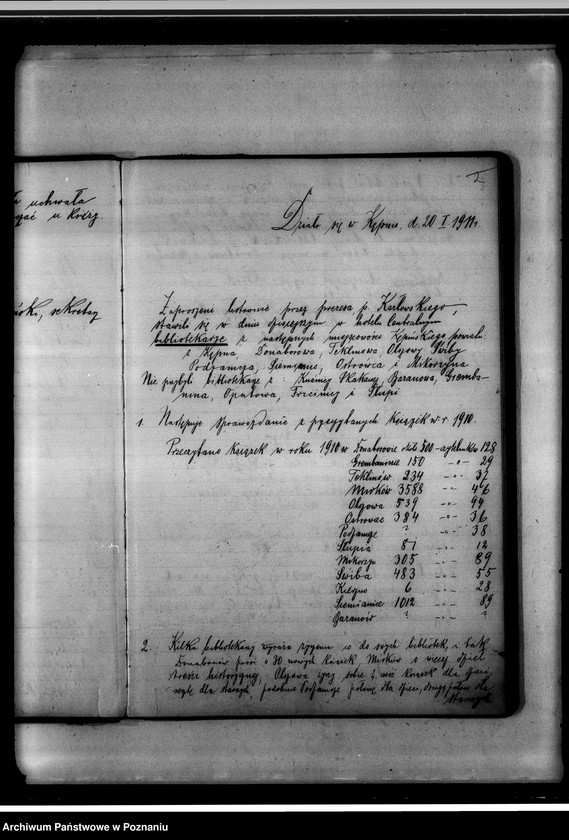 uchwała
u księg.
sekretarz
I
Działo się w Kępnie, d. 20 I 1911 r.
Zaproszeni listownie przez prezesa p. Karłowskiego,
stawili się w dniu dzisiejszym w hotelu Centralnym
bibliotekarze z następnych miejscowości Kępińskiego powiatu:
z Kępna, Donaborowa, Teklinowa, Olszowy, Świby
Podzamcza, Siemianic, Ostrówca i Mikorzyna
Nie przybyli bibliotekarze z: Kuźnicy Skakawy, Baranowa, Gremba-
nina, Opatowa, Trzcinicy i Słupi
1. Następuje sprawozdanie z przeczytanych książek w r. 1910.
Przeczytano książek w roku 1910 w Donaborowie około 300 - czytelników 128
Grembaninie 150 -"- 29
Teklinów 234 -"- 37
Mirków 3588 -"- 446
Olszowa 539 -"- 94
Ostrówiec 384 -"- 36
Podzamcze ? -"- 38
Słupia 81 -"- 12
Mikorzyn 305 -"- 89
Świba 483 -"- 55
6 -"- 28
Siemianice 1012 -"- 89
Baranów ? -"-
2. Kilku bibliotekarzy wyraża życzenia co do swych bibliotek, i tak
Donaborów prosi o 30 nowych książek, Mirków o więcej dzieł
treści historycznej, Olszowa życzy sobie książek dla dzieci,
resztę dla starszych, podobnie Podzamcze połowę dla dzieci, drugą połowę dla
starszych